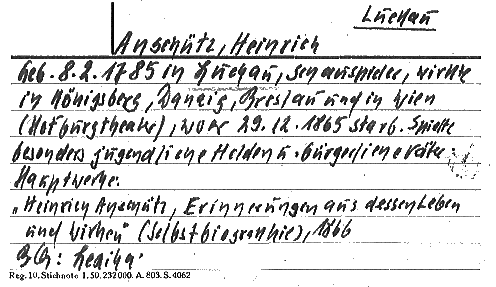 Luckau
Anschütz, Heinrich
Geb. 8.2.1785 in Luckau, Schauspieler, wirkte
in Königsberg, Danzig, Breslau und in Wien
(Hofburgtheater), wo er 29.12.1865 starb. Spielte
besonders jugendliche Helden u. bürgerliche Väter.
Hauptwerke:
„Heinrich Anschütz, Erinnerungen aus dessen Leben
und Wirken" (Selbstbiographie), 1866
Reg. 10. Stichnote 1. 50. 232000. A. 803. S. 4062